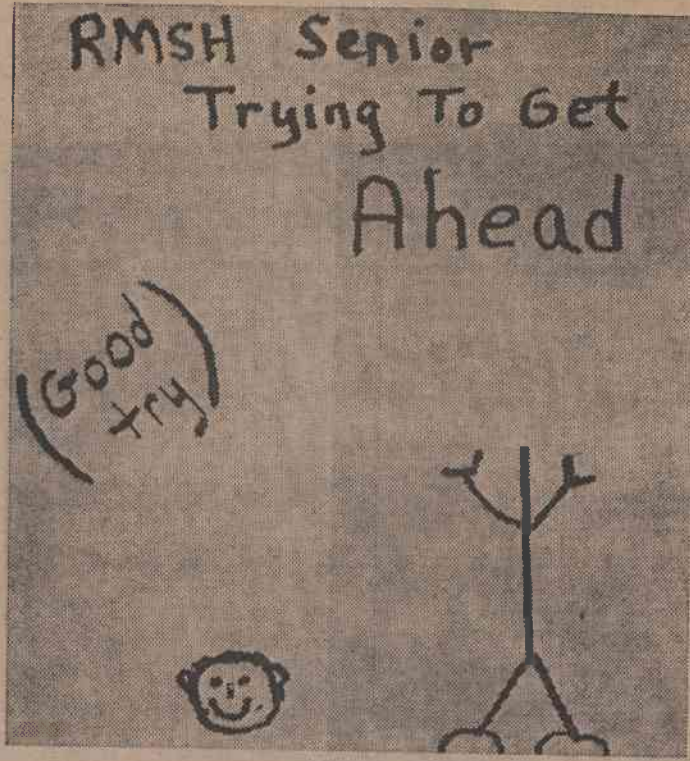 RMSH Senior
Trying To Get
Ahead
(Good
try)